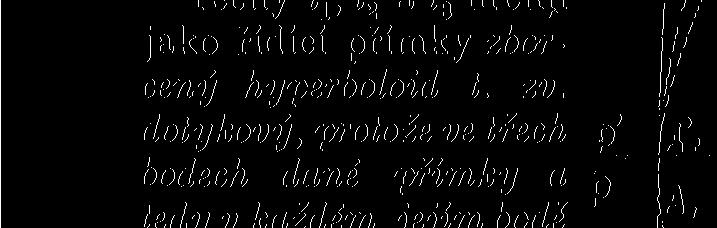 jako řídící přímky zbor-
cený hyperboloid t. zv.
dotykový, protože ve třech
bodech dané přímky a
tedy v každém jejím bodě
p'
p